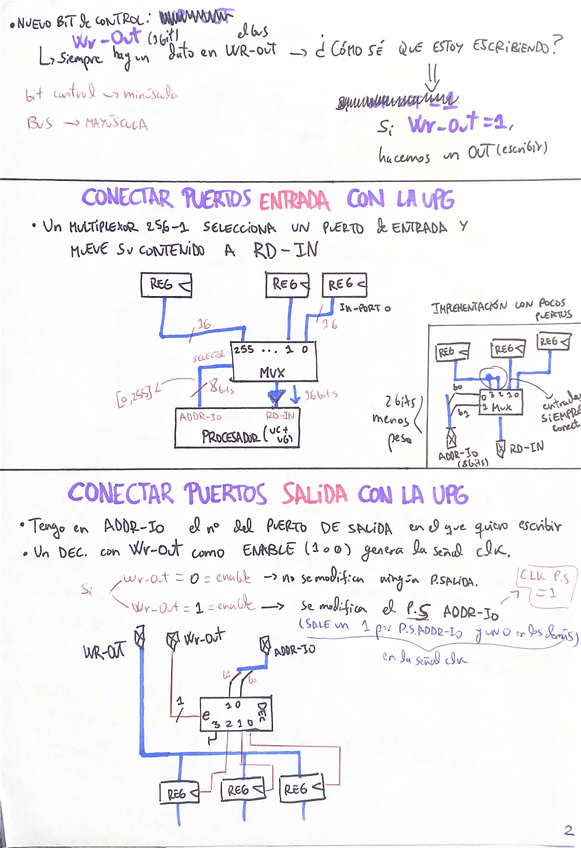 • NUEVO BIT de CONTROL:
Wr-Out (1bit) el bus
↳ Siempre hay un dato en WR-OUT → ¿CÓMO SÉ QUE ESTOY ESCRIBIENDO?
bit control → minúscula
BUS → MAYÚSCULA
Si Wr-Out = 1,
hacemos un OUT (escribir)
CONECTAR PUERTOS ENTRADA CON LA UPG
• Un MULTIPLEXOR 256-1 SELECCIONA UN PUERTO de ENTRADA Y
MUEVE SU CONTENIDO A RD-IN
REG REG REG
16 16 IN-PORT 0
SELECTOR 255 ... 1 0
MUX
[0,255] 8bits 16bits
ADDR-IO RD-IN
PROCESADOR (UC+UG)
IMPLEMENTACIÓN CON POCOS
PUERTOS
REG REG REG
b0 0 3 2 1 0
b1 1 MUX
2 bits
menos
peso
entradas
SIEMPRE
conect
ADDR-IO
(8bits)
RD-IN
CONECTAR PUERTOS SALIDA CON LA UPG
• Tengo en ADDR-IO el nº del PUERTO DE SALIDA en el que quiero escribir
• Un DEC. con Wr-Out como ENABLE (1 o 0) genera la señal clk.
Si
wr-out = 0 = enable → no se modifica ningún P.SALIDA.
Wr-out = 1 = enable → se modifica el P.S ADDR-IO
CLK P.S
= 1
(SALE un 1 por P.S.ADDR-IO y un 0 en los demás)
en la señal clk
WR-OUT Wr-out ADDR-IO
b1 b0
1 e 1 0 DEC
3 2 1 0
REG REG REG
2